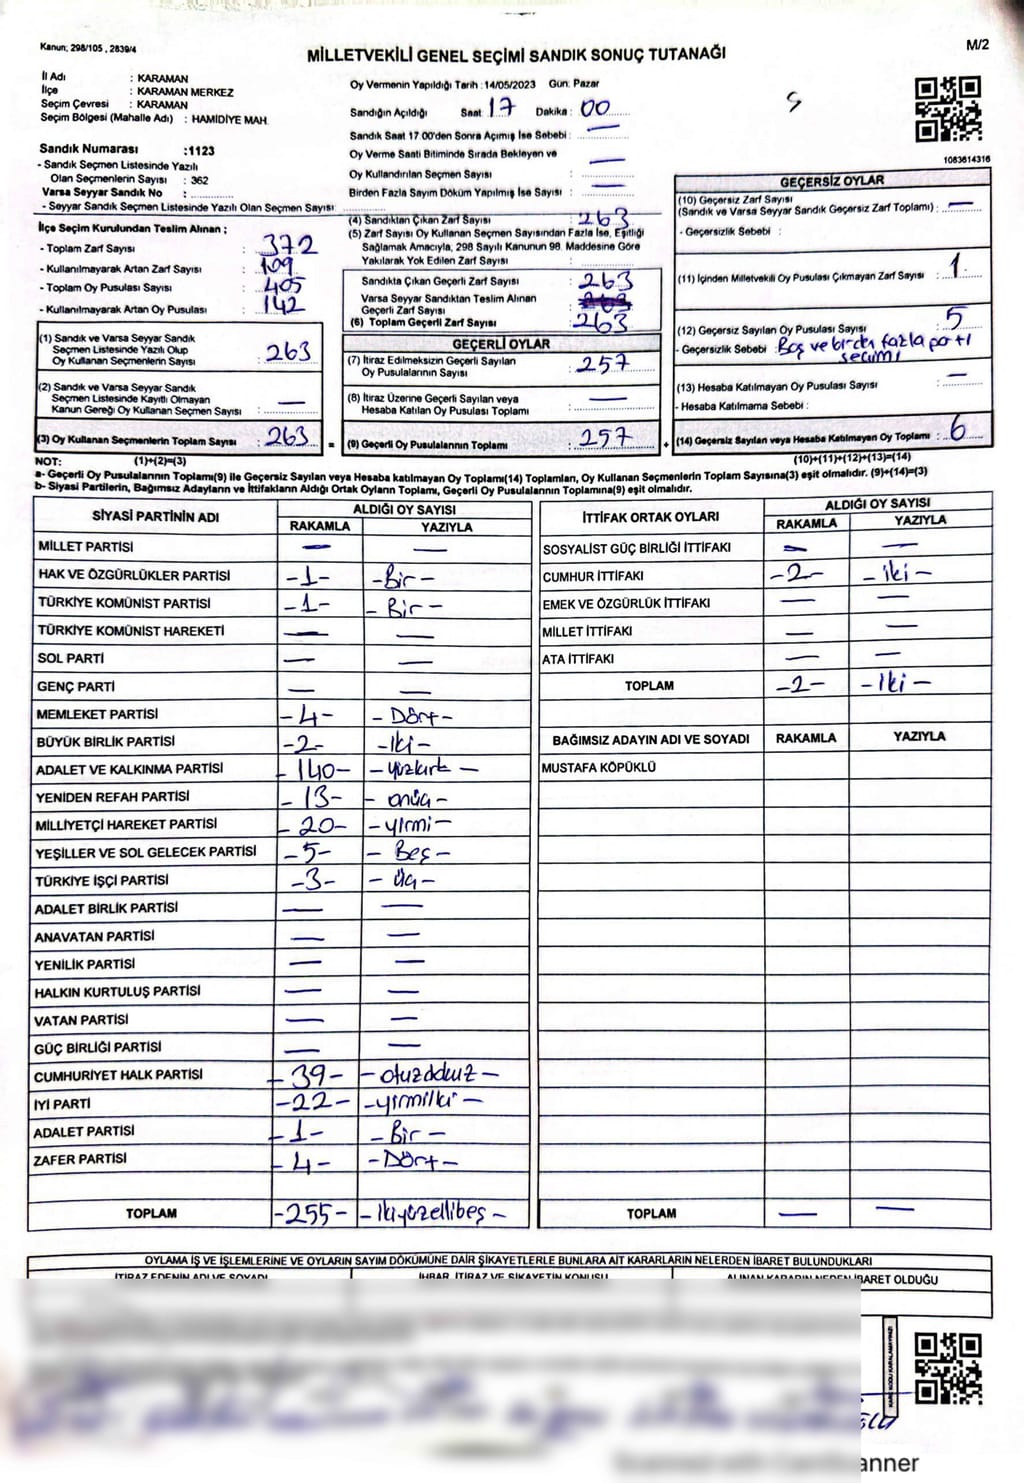 Kanun; 298/105 , 2839/4
MİLLETVEKİLİ GENEL SEÇİMİ SANDIK SONUÇ TUTANAĞI
M/2
İl Adı : KARAMAN
İlçe : KARAMAN MERKEZ
Seçim Çevresi : KARAMAN
Seçim Bölgesi (Mahalle Adı) : HAMİDİYE MAH.
Sandık Numarası :1123
- Sandık Seçmen Listesinde Yazılı
Olan Seçmenlerin Sayısı : 362
Varsa Seyyar Sandık No :
- Seyyar Sandık Seçmen Listesinde Yazılı Olan Seçmen Sayısı:
Oy Vermenin Yapıldığı Tarih :14/05/2023 Gün: Pazar
Sandığın Açıldığı Saat: 17 Dakika : 00
Sandık Saat 17.00'den Sonra Açımış İse Sebebi : —
Oy Verme Saati Bitiminde Sırada Bekleyen ve
Oy Kullandırılan Seçmen Sayısı : —
Birden Fazla Sayım Döküm Yapılmış İse Sayısı : —
1083614316
İlçe Seçim Kurulundan Teslim Alınan ;
- Toplam Zarf Sayısı : 372
- Kullanılmayarak Artan Zarf Sayısı : 109
- Toplam Oy Pusulası Sayısı : 405
- Kullanılmayarak Artan Oy Pusulası : 142
(1) Sandık ve Varsa Seyyar Sandık
Seçmen Listesinde Yazılı Olup
Oy Kullanan Seçmenlerin Sayısı : 263
(2) Sandık ve Varsa Seyyar Sandık
Seçmen Listesinde Kayıtlı Olmayan
Kanun Gereği Oy Kullanan Seçmen Sayısı : —
(3) Oy Kullanan Seçmenlerin Toplam Sayısı : 263 =
(4) Sandıktan Çıkan Zarf Sayısı : 263
(5) Zarf Sayısı Oy Kullanan Seçmen Sayısından Fazla İse, Eşitliği
Sağlamak Amacıyla, 298 Sayılı Kanunun 98. Maddesine Göre
Yakılarak Yok Edilen Zarf Sayısı :
Sandıkta Çıkan Geçerli Zarf Sayısı : 263
Varsa Seyyar Sandıktan Teslim Alınan
Geçerli Zarf Sayısı :
(6) Toplam Geçerli Zarf Sayısı : 263
GEÇERLİ OYLAR
(7) İtiraz Edilmeksizin Geçerli Sayılan
Oy Pusulalarının Sayısı : 257
(8) İtiraz Üzerine Geçerli Sayılan veya
Hesaba Katılan Oy Pusulası Toplamı : —
(9) Geçerli Oy Pusulalarının Toplamı : 257 +
GEÇERSİZ OYLAR
(10) Geçersiz Zarf Sayısı
(Sandık ve Varsa Seyyar Sandık Geçersiz Zarf Toplamı) : —
- Geçersizlik Sebebi :
(11) İçinden Milletvekili Oy Pusulası Çıkmayan Zarf Sayısı : 1
(12) Geçersiz Sayılan Oy Pusulası Sayısı : 5
- Geçersizlik Sebebi : Boş ve birden fazla parti
seçimi
(13) Hesaba Katılmayan Oy Pusulası Sayısı : —
- Hesaba Katılmama Sebebi :
(14) Geçersiz Sayılan veya Hesaba Katılmayan Oy Toplamı : 6
NOT: (1)+(2)=(3) (10)+(11)+(12)+(13)=(14)
a- Geçerli Oy Pusulalarının Toplamı(9) ile Geçersiz Sayılan veya Hesaba katılmayan Oy Toplamı(14) Toplamları, Oy Kullanan Seçmenlerin Toplam Sayısına(3) eşit olmalıdır. (9)+(14)=(3)
b- Siyasi Partilerin, Bağımsız Adayların ve İttifakların Aldığı Ortak Oyların Toplamı, Geçerli Oy Pusulalarının Toplamına(9) eşit olmalıdır.
SİYASİ PARTİNİN ADI ALDIĞI OY SAYISI
RAKAMLA YAZIYLA
MİLLET PARTİSİ — —
HAK VE ÖZGÜRLÜKLER PARTİSİ -1- -Bir-
TÜRKİYE KOMÜNİST PARTİSİ -1- -Bir-
TÜRKİYE KOMÜNİST HAREKETİ — —
SOL PARTİ — —
GENÇ PARTİ — —
MEMLEKET PARTİSİ -4- -Dört-
BÜYÜK BİRLİK PARTİSİ -2- -İki-
ADALET VE KALKINMA PARTİSİ -140- -yüzkırk-
YENİDEN REFAH PARTİSİ -13- -onüç-
MİLLİYETÇİ HAREKET PARTİSİ -20- -yirmi-
YEŞİLLER VE SOL GELECEK PARTİSİ -5- -Beş-
TÜRKİYE İŞÇİ PARTİSİ -3- -Üç-
ADALET BİRLİK PARTİSİ — —
ANAVATAN PARTİSİ — —
YENİLİK PARTİSİ — —
HALKIN KURTULUŞ PARTİSİ — —
VATAN PARTİSİ — —
GÜÇ BİRLİĞİ PARTİSİ — —
CUMHURİYET HALK PARTİSİ -39- -otuzdokuz-
İYİ PARTİ -22- -yirmiiki-
ADALET PARTİSİ -1- -Bir-
ZAFER PARTİSİ -4- -Dört-
TOPLAM -255- -ikiyüzellibeş-
İTTİFAK ORTAK OYLARI ALDIĞI OY SAYISI
RAKAMLA YAZIYLA
SOSYALİST GÜÇ BİRLİĞİ İTTİFAKI — —
CUMHUR İTTİFAKI -2- -iki-
EMEK VE ÖZGÜRLÜK İTTİFAKI — —
MİLLET İTTİFAKI — —
ATA İTTİFAKI — —
TOPLAM -2- -iki-
BAĞIMSIZ ADAYIN ADI VE SOYADI RAKAMLA YAZIYLA
MUSTAFA KÖPÜKLÜ
TOPLAM — —
OYLAMA İŞ VE İŞLEMLERİNE VE OYLARIN SAYIM DÖKÜMÜNE DAİR ŞİKAYETLERLE BUNLARA AİT KARARLARIN NELERDEN İBARET BULUNDUKLARI
İTİRAZ EDENİN ADI VE SOYADI İHBAR, İTİRAZ VE ŞİKAYETİN KONUSU ALINAN KARARIN NEDEN İBARET OLDUĞU
KARE KODU KARALAMAYINIZ!